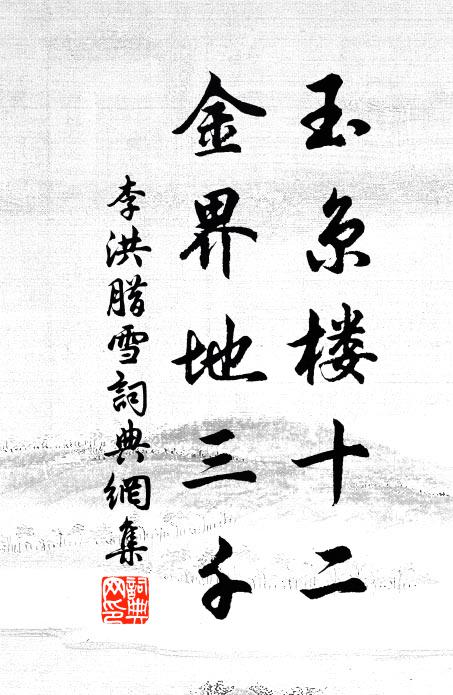 玉京楼十二
金界地三千
李洪腊雪詞典網集
詞典网印